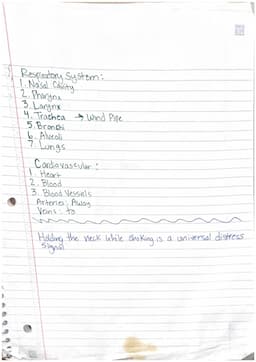 Respiratory System:
1. Nasal Cavity
2. Pharynx
3. Larynx
4. Trachea → Wind Pipe
5. Bronchi
6. Alveoli
7. Lungs
Cardiovascular:
1. Heart
2. Blood
3. Blood Vessels
Arteries: Away
Veins: to
Holding the neck while choking is a universal distress
signal